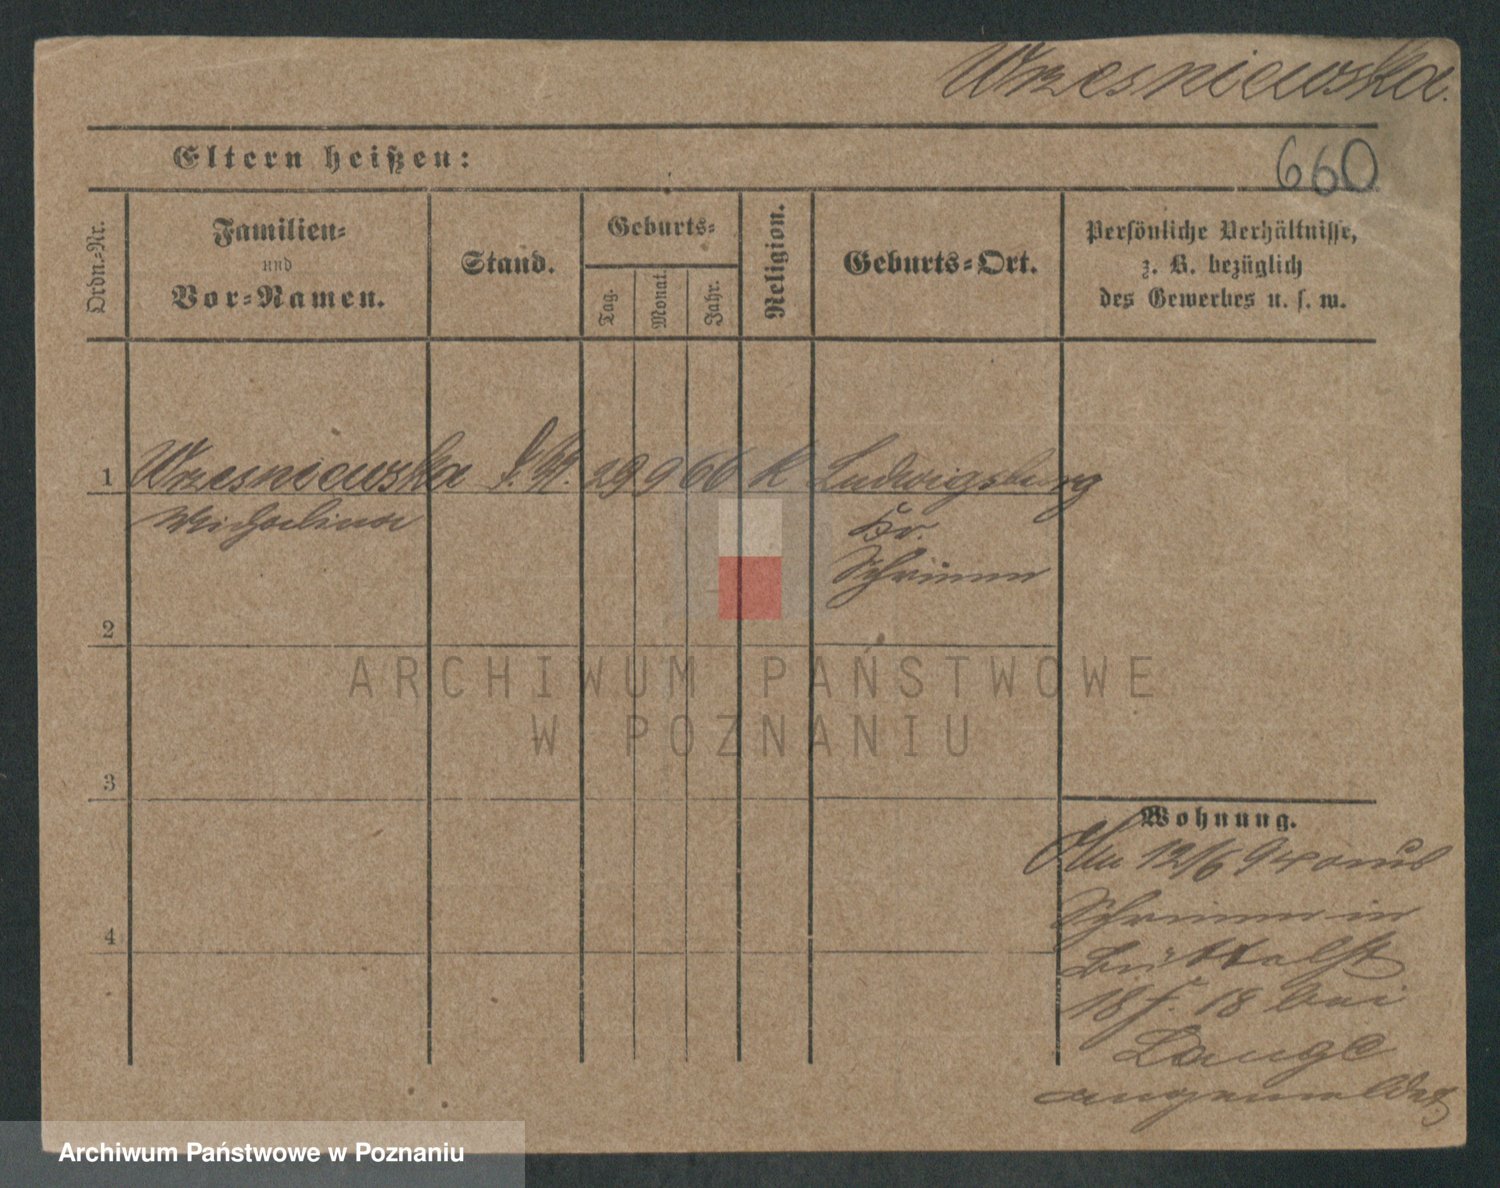 Wrzesniewska.
660
Eltern heißen:
Ordn.-Nr.
Familien-
und
Vor-Namen.
Stand.
Geburts-
Tag.
Monat.
Jahr.
Religion.
Geburts-Ort.
Persönliche Verhältnisse,
z. B. bezüglich
des Gewerbes u. s. w.
1 Wrzesniewska 29 9 66 K Ludwigsburg
Michalina Kr.
Schrimm
2
3
4
Wohnung.
Am 12/6 94 aus
Schrimm in
18 bei
Lange
angemeldet
ARCHIWUM PAŃSTWOWE
W POZNANIU
Archiwum Państwowe w Poznaniu